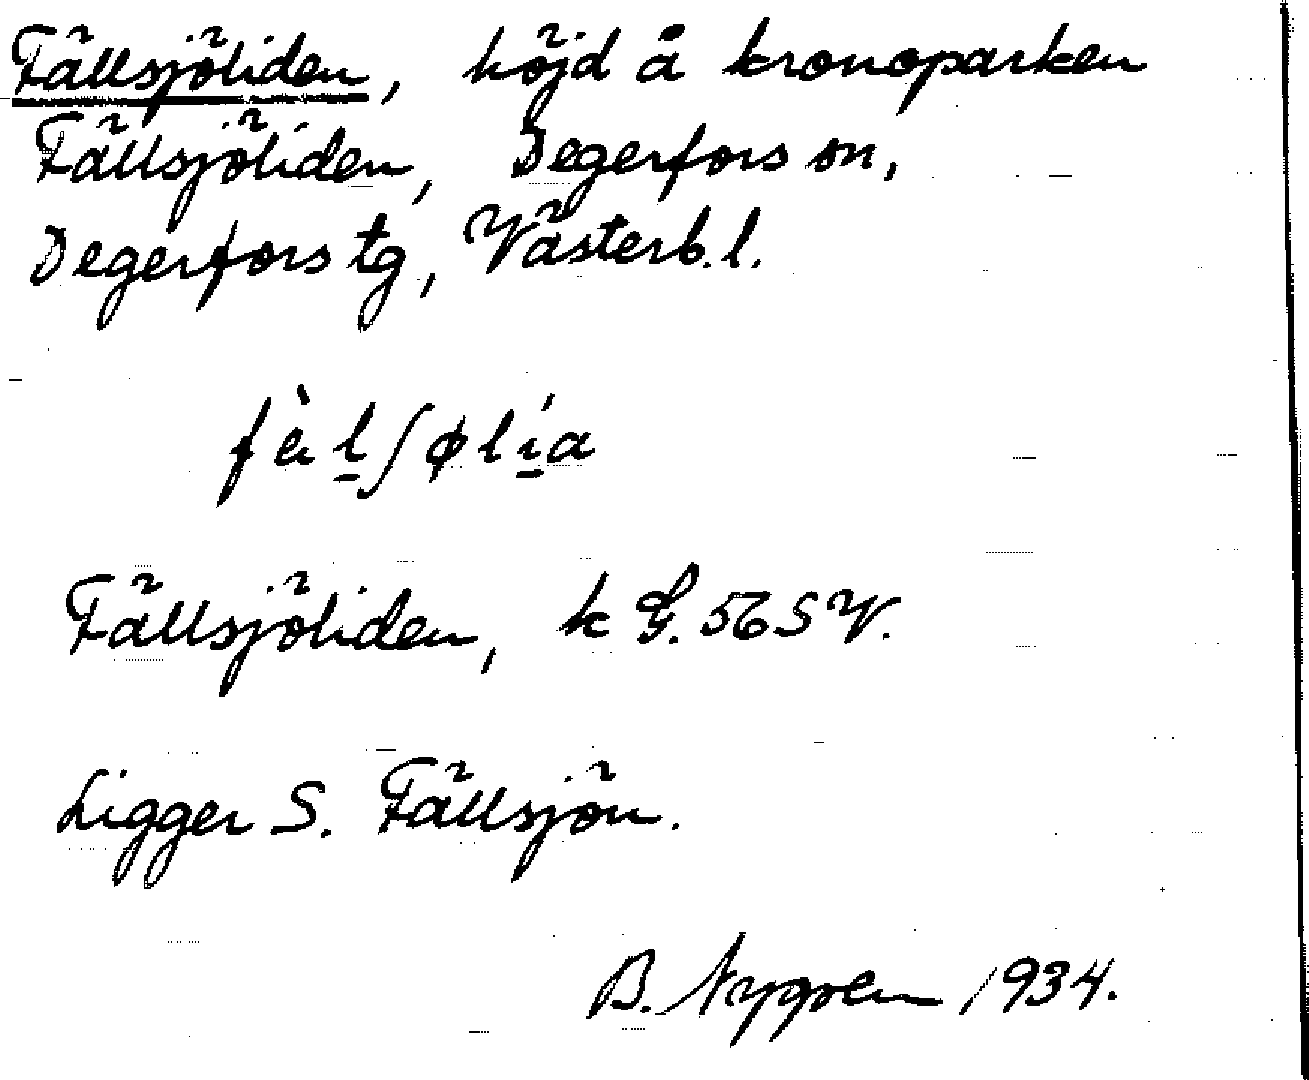 Fällsjöliden, höjd å kronoparken
Fällsjöliden, Degerfors sn,
Degerfors tg, Västerb. l.
fὰl̠ʃølí̠a
Fällsjöliden, k G. 56 SV.
Ligger S. Fällsjön.
B. Nygren 1934.